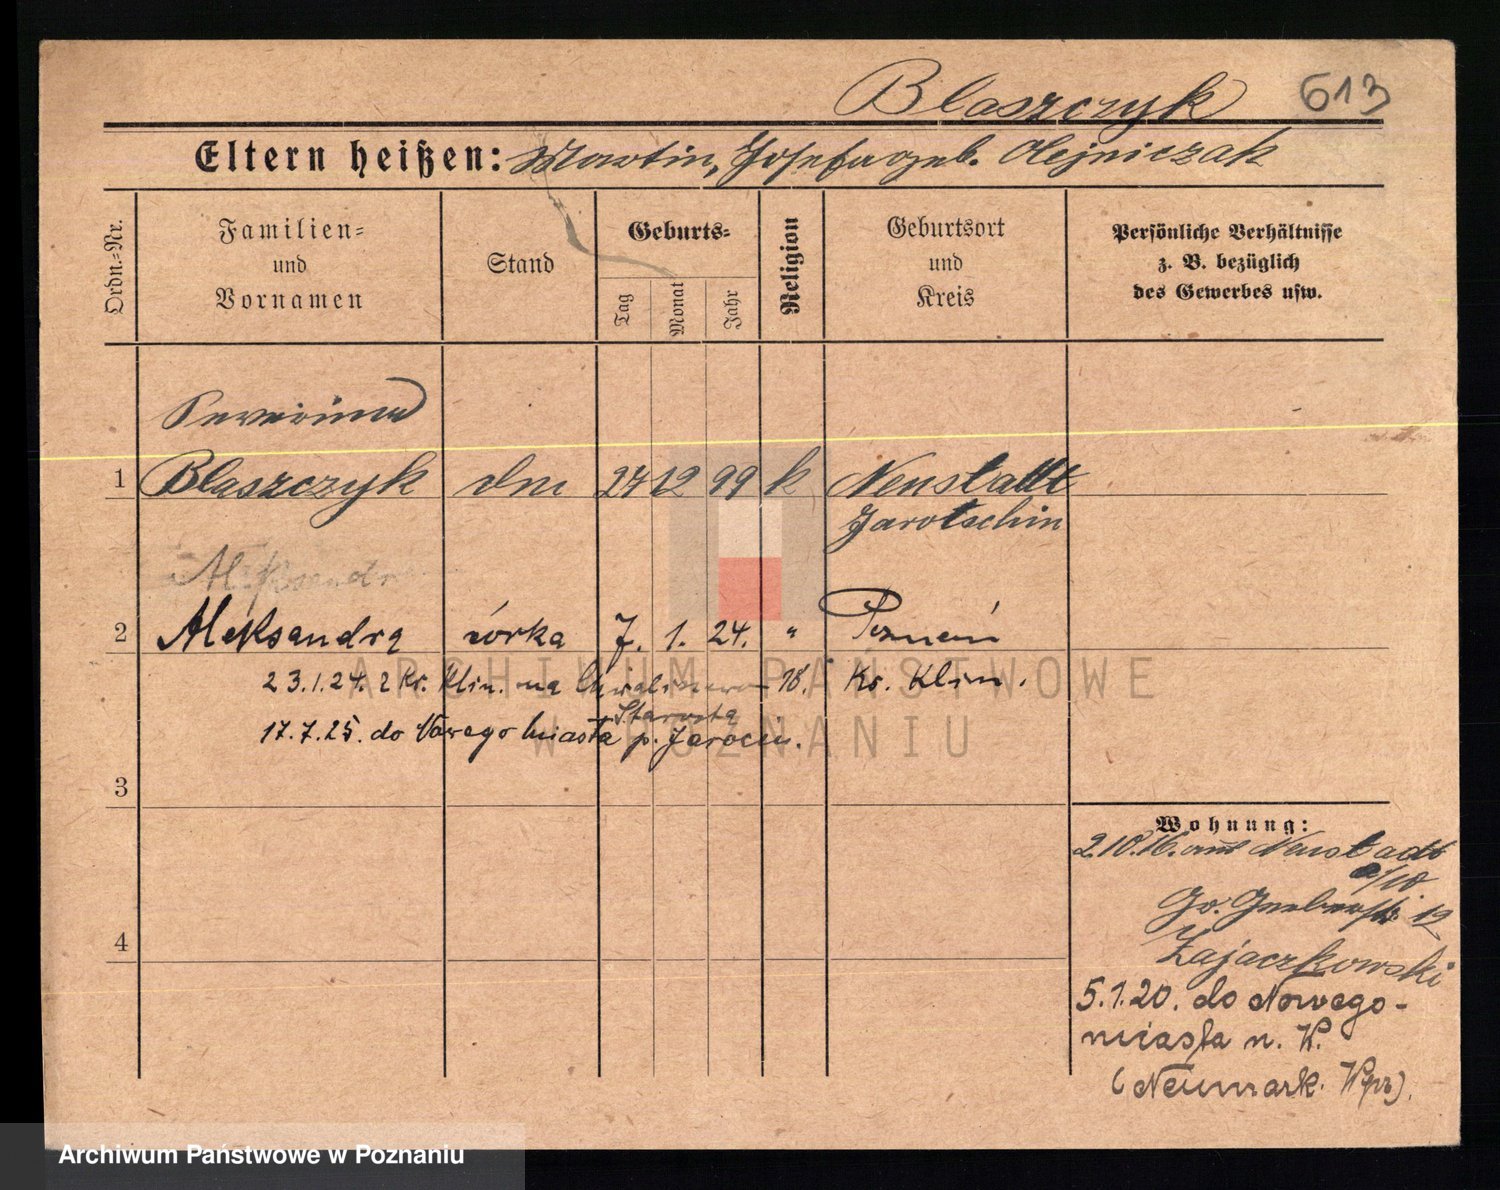 Blaszczyk 613
Eltern heißen: Martin, Josefa geb. Olejniczak
Ordn.-Nr.
Familien-
und
Vornamen
Stand
Geburts-
Tag
Monat
Jahr
Religion
Geburtsort
und
Kreis
Persönliche Verhältnisse
z. B. bezüglich
des Gewerbes usw.
Severina
1 Blaszczyk dm 27 12 99 k Neustadt
Jarotschin
Aleksandra
2 Aleksandra córka 7. 1. 24. " Poznań
23.1.24. Kr. Klin. na 18. Kr. Klin.
Starosta
17.7.25. do Nowego Miasta p. Jarocin.
3
Wohnung:
2.10.16. aus Neustadt
a/W
Zajaczkowski
4
5.1.20. do Nowego-
miasta n. W.
(Neumark. Wpr).
ARCHIWUM PAŃSTWOWE
W POZNANIU
Archiwum Państwowe w Poznaniu